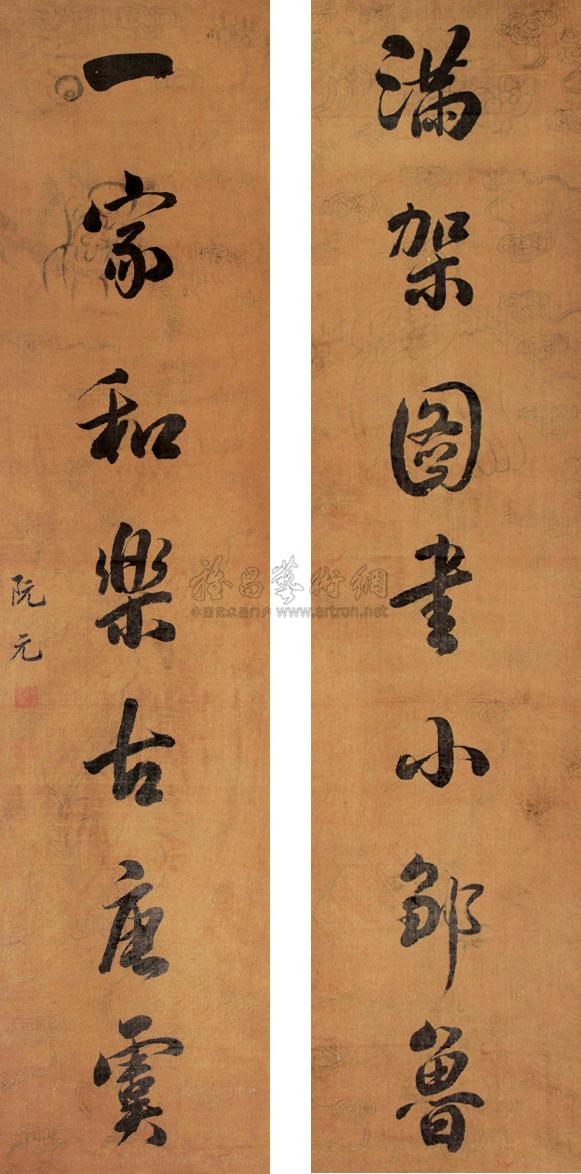 满架图书小邹鲁
一家和樂古唐虞
阮元
雅昌藝術網
中国艺术品门户 www.artron.net